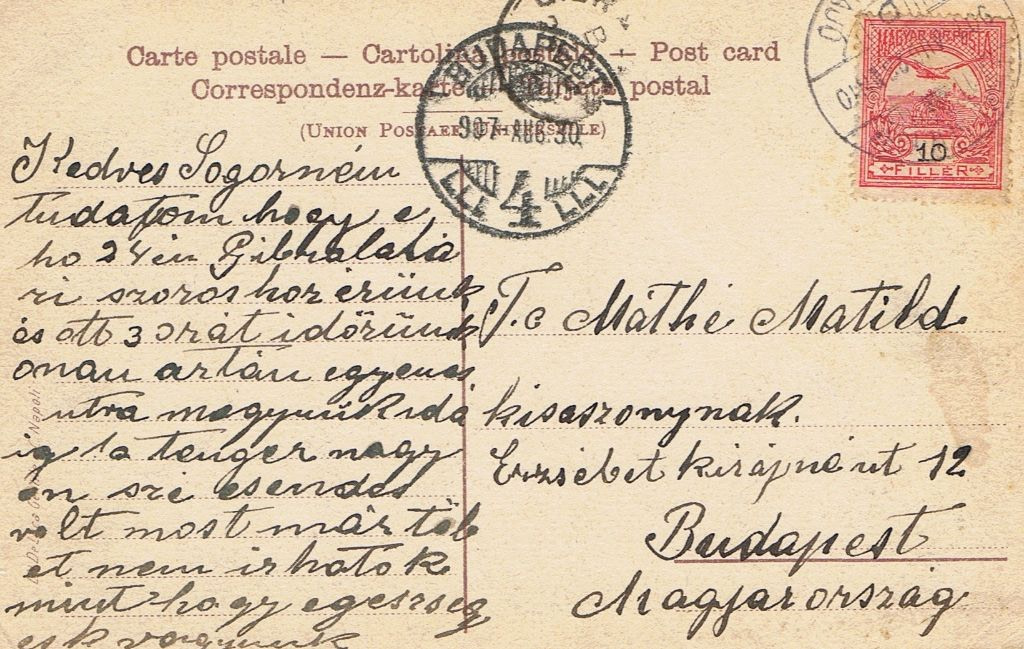 Carte postale — Cartolina postale — Post card
Correspondenz-karte — Tarjeta postal
(UNION POSTALE UNIVERSELLE)
BUDAPEST
907 AUG. 30
4
MAGYAR KIR. POSTA
10
FILLÉR
Kedves Sogorném
tudatom hogy e
ho 24 én Gibraltá
ri szoros hoz érünk
és ott 3 orát időzünk
onan aztán egyenes
utra megyünk idá
ig a tenger nagy
on szé csendes
volt most már töb
et nem irhatok
mint hogy egeszseg
esk vagyunk
T.c Máthé Matild
kisaszonynak.
Erzsébet kirájné ut 12
Budapest
Magyarország
Napoli